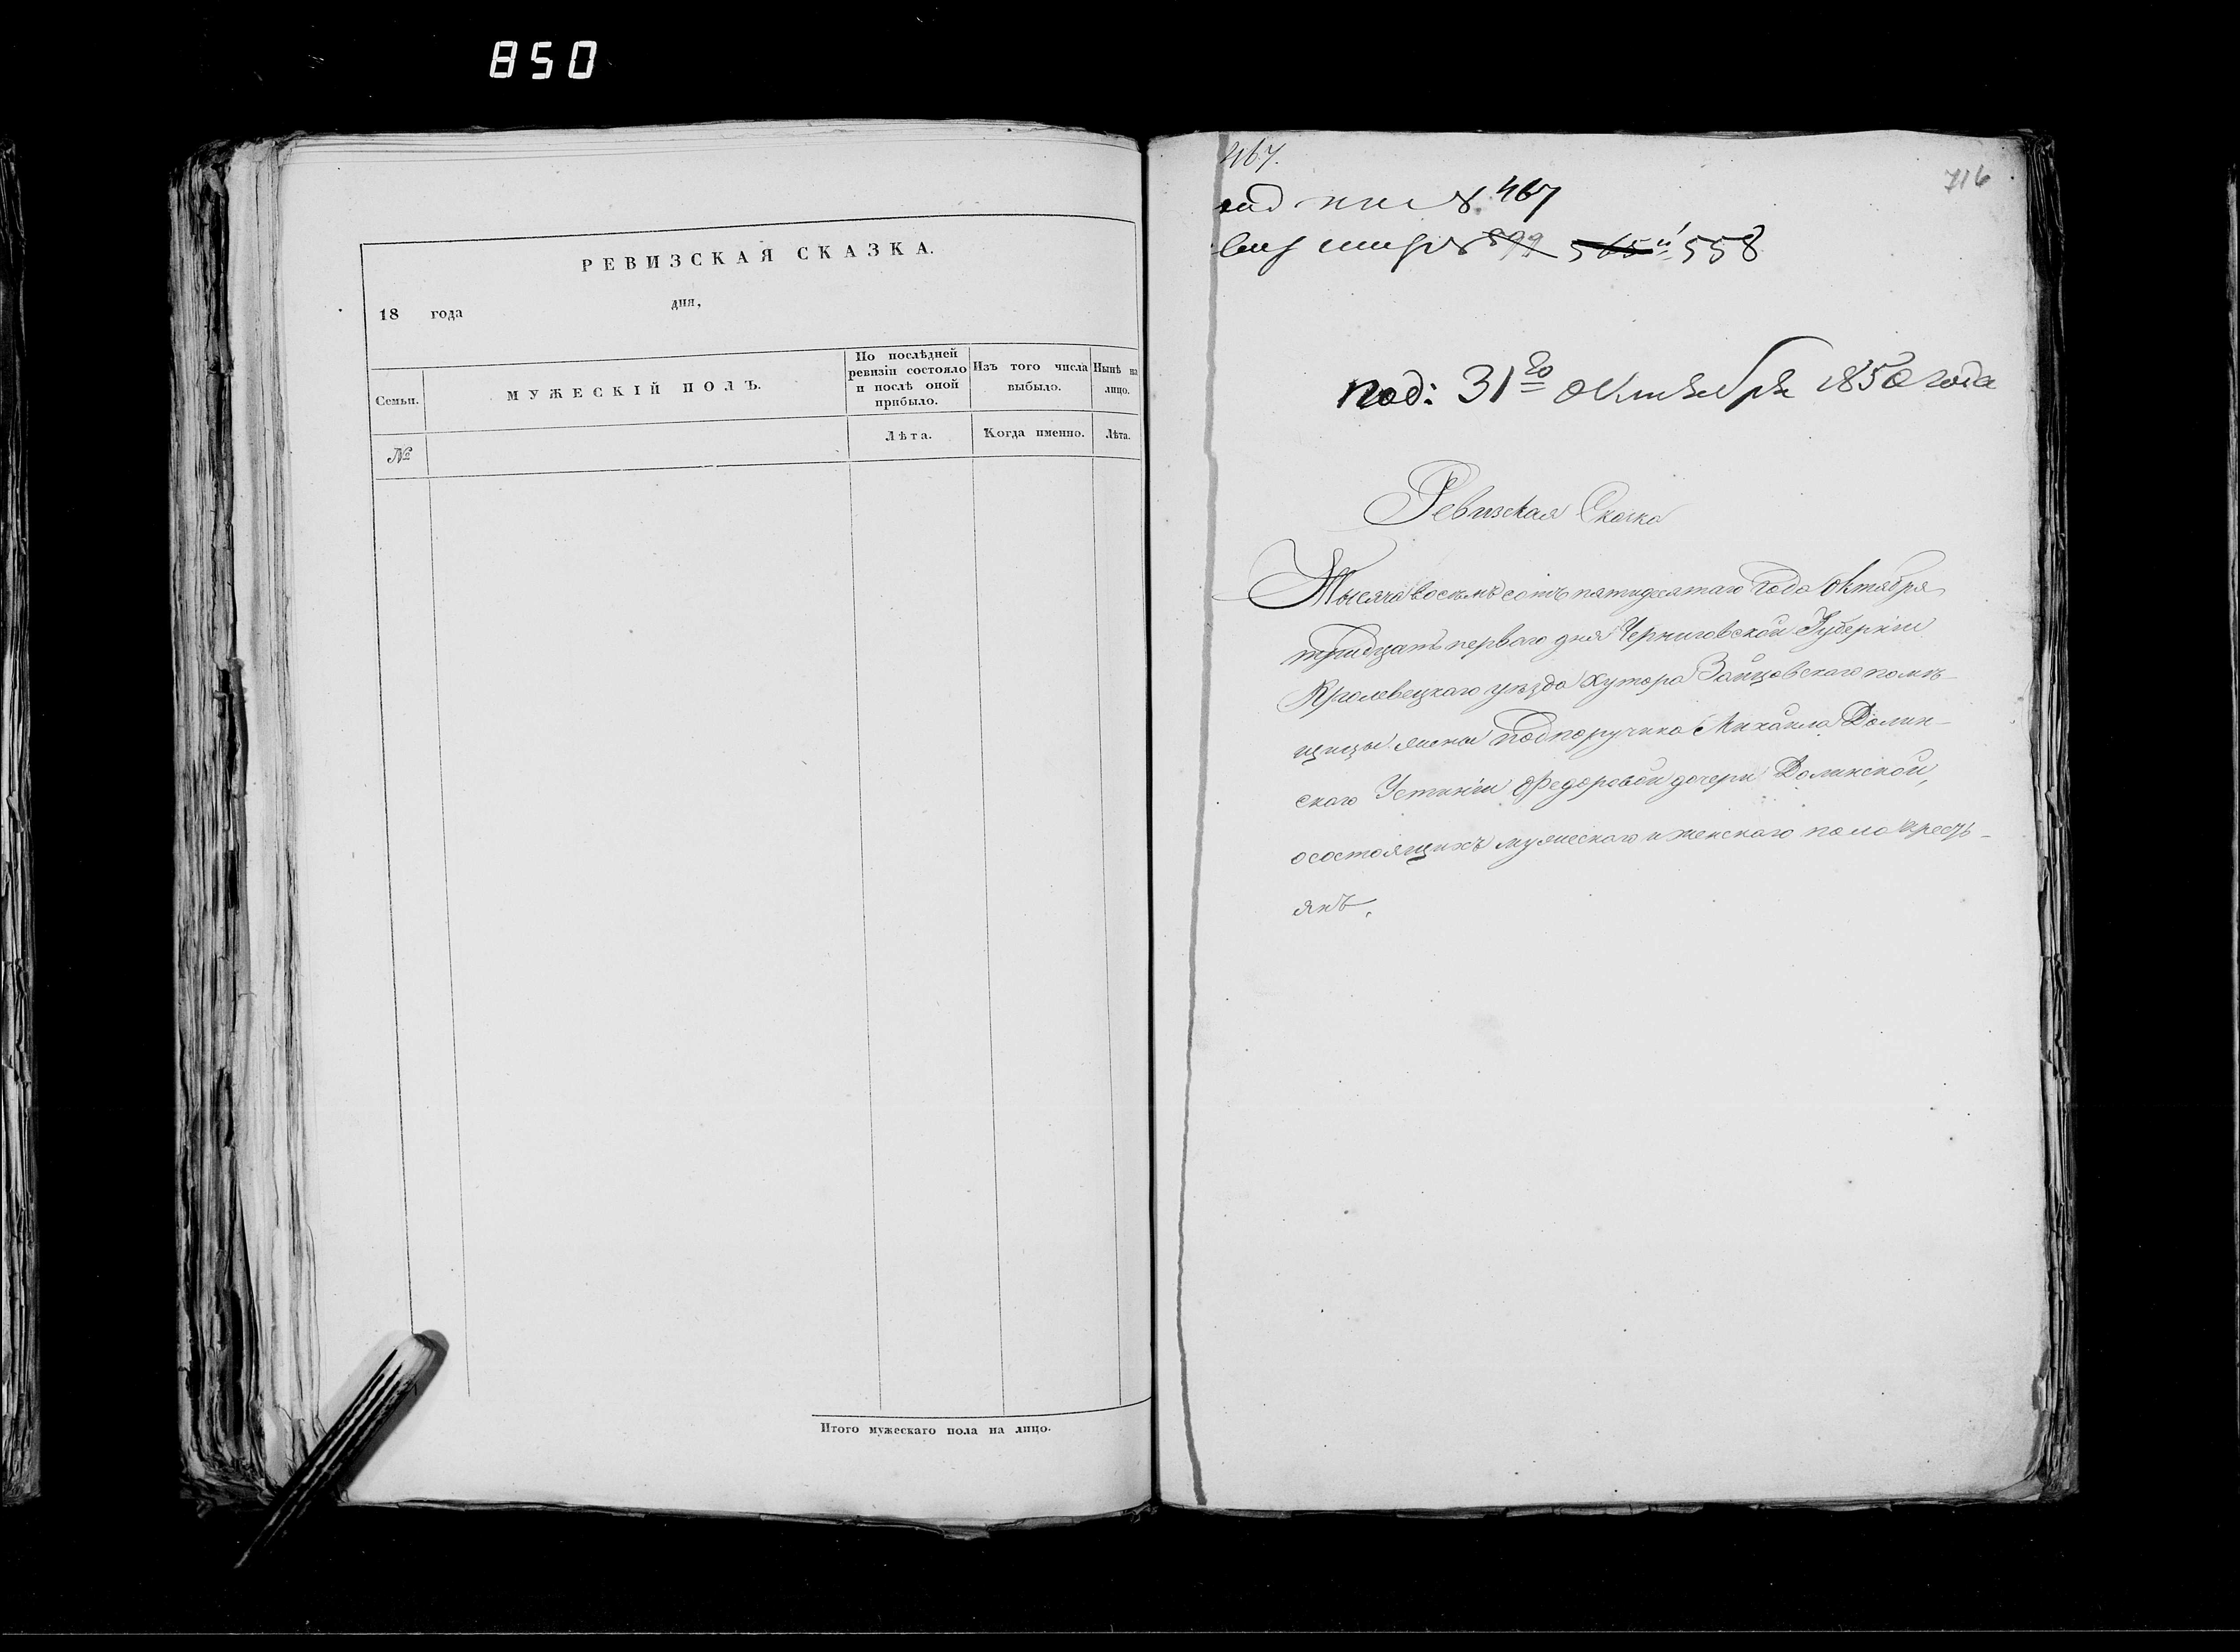 850
РЕВИЗСКАЯ СКАЗКА.
18 года дня,
Семьи.
МУЖЕСКІЙ ПОЛЪ.
По послѣдней ревизіи состояло и послѣ оной прибыло.
Изъ того числа выбыло.
Нынѣ на лицо.
№
Лѣта.
Когда именно.
Лѣта.
Итого мужескаго пола на лицо.
467.
716
467
599 565 558
под: 31го октября 1850 года
Ревизская Сказка
Тысяча восемь сотъ пятидесятаго Года Октября
тридцать перваго дня Черниговской Губерніи
Кролевецкаго уѣзда Хутора Зайцовскаго помѣ-
щицы жены Подпоручика Михаила Долин-
скаго Устиніи Федоровой дочери Долинской,
о состоящихъ мужескаго и женскаго пола кресть-
янъ.